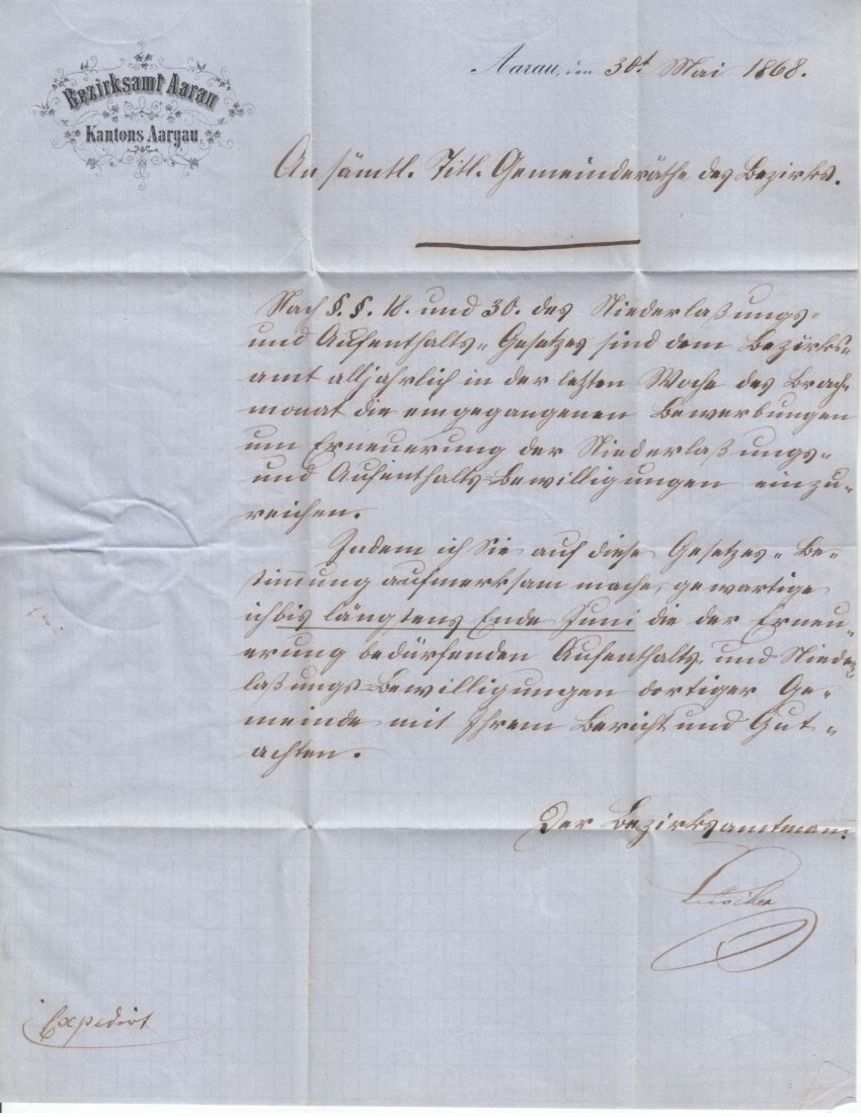 Bezirksamt Aarau
Kantons Aargau.
Aarau, den 30t Mai 1868.
An sämtl. Titl. Gemeinderäthe des Bezirks.
Nach §.§. 18. und 30. des Niederlaßungs-
und Aufenthalts-Gesetzes sind dem Bezirks-
amt alljährlich in der letzten Woche des Brach-
monat die eingegangenen Bewerbungen
um Erneuerung der Niederlaßungs-
und Aufenthalts-Bewilligungen einzu-
reichen.
Indem ich Sie auf diese Gesetzes-Be-
stimmung aufmerksam mache, gewärtige
ich bis längstens Ende Juni die der Erneu-
erung bedürfenden Aufenthalts- und Nieder-
laßungs-Bewilligungen dortiger Ge-
meinde mit Ihrem Bericht und Gut-
achten.
Der Bezirksamtmann:
Expedirt